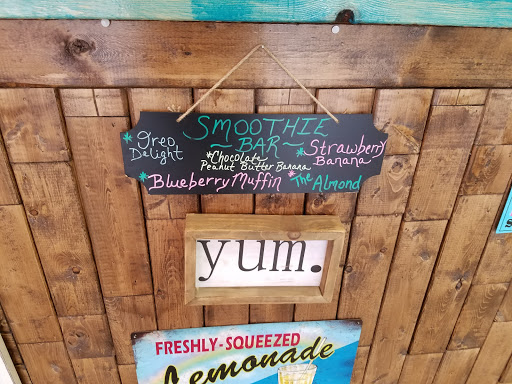 SMOOTHIE
~ BAR ~
*Oreo
Delight
*Chocolate
Peanut Butter Banana
*Strawberry
Banana
*Blueberry Muffin
*The Almond
yum.
FRESHLY-SQUEEZED
Lemonade